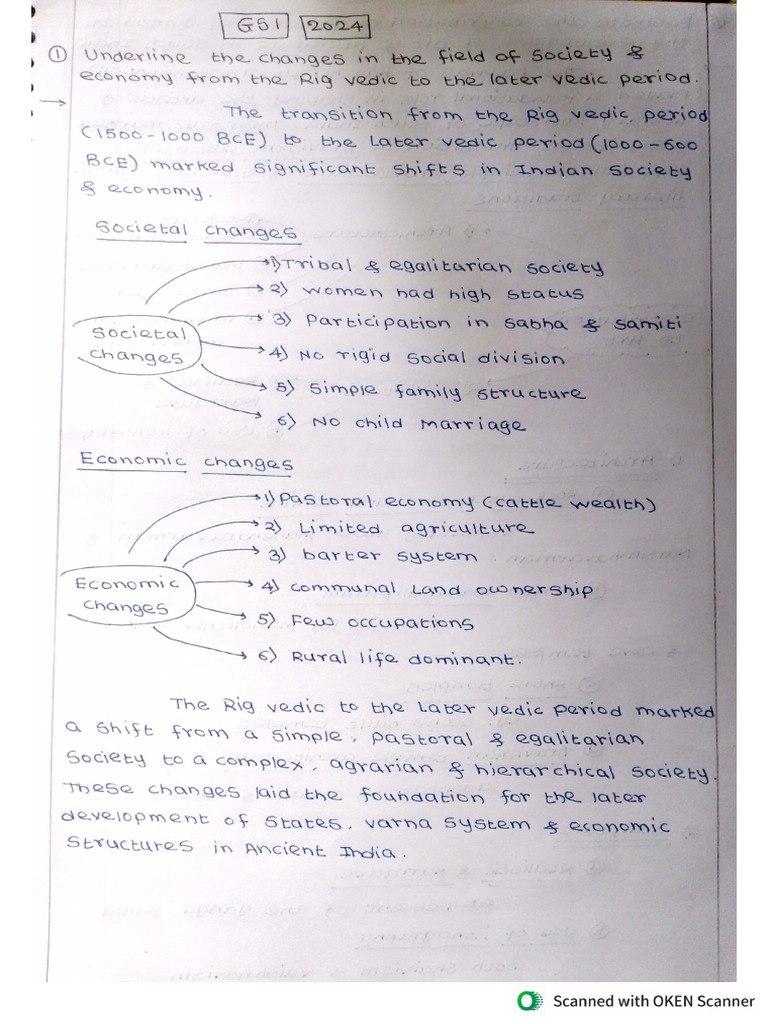 GS1 2024
① Underline the changes in the field of society &
economy from the Rig vedic to the later vedic period.
→ The transition from the Rig vedic period
(1500-1000 BCE) to the Later vedic period (1000-600
BCE) marked significant shifts in Indian society
& economy.
Societal changes
Societal changes
1) Tribal & egalitarian society
2) women had high status
3) Participation in sabha & samiti
4) No rigid social division
5) Simple family structure
6) No child marriage
Economic changes
Economic changes
1) Pastoral economy (cattle wealth)
2) Limited agriculture
3) barter system
4) communal Land ownership
5) Few occupations
6) Rural life dominant.
The Rig vedic to the Later vedic period marked
a shift from a simple, pastoral & egalitarian
society to a complex, agrarian & hierarchical society.
These changes laid the foundation for the later
development of states, varna system & economic
structures in Ancient India.
Scanned with OKEN Scanner